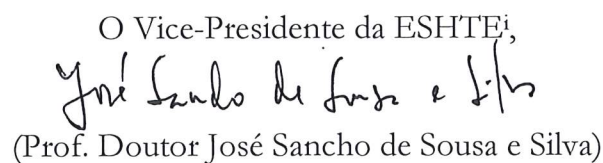 O Vice-Presidente da ESHTEⁱ,
José Sancho de Sousa e Silva
(Prof. Doutor José Sancho de Sousa e Silva)